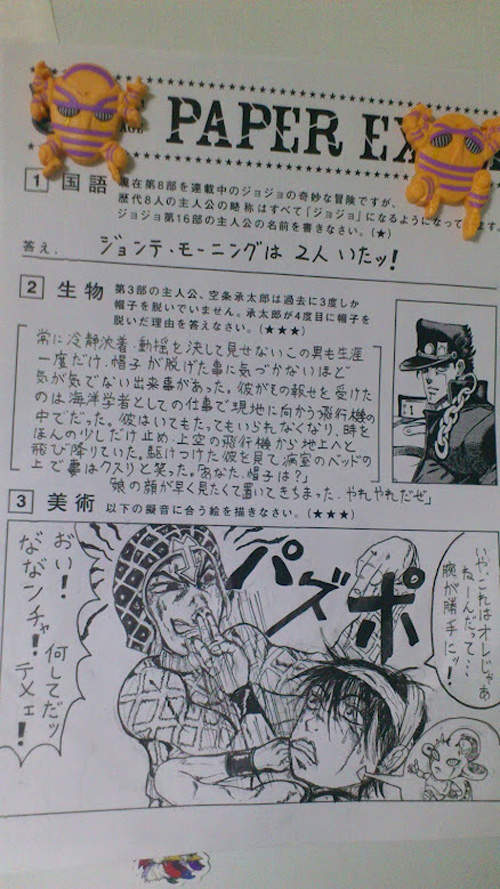 PAPER EX
1 国語 現在第8部を連載中のジョジョの奇妙な冒険ですが、
歴代8人の主人公の略称はすべて「ジョジョ」になるようになっています。
ジョジョ第16部の主人公の名前を書きなさい。(★)
答え. ジョンテ・モーニングは 2人 いたッ!
2 生物 第3部の主人公、空条承太郎は過去に3度しか
帽子を脱いでいません。承太郎が4度目に帽子を
脱いだ理由を答えなさい。(★★★)
常に冷静沈着.動揺を決して見せないこの男も生涯
一度だけ.帽子が脱げた事に気づかないほど
気が気でない出来事があった。彼がその報せを受けた
のは海洋学者としての仕事で現地に向かう飛行機の
中でだった。彼はいてもたってもいられなくなり、時を
ほんの少しだけ止め.上空の飛行機から地上へと
飛び降りていた。駆けつけた彼を見て病室のベッドの
上で妻はクスリと笑った。「あなた.帽子は?」
「娘の顔が早く見たくて置いてきちまった.やれやれだぜ」
3 美術 以下の擬音に合う絵を描きなさい。(★★★)
いや、これはオレじゃあ
ねーんだって…
腕が勝手にッ!
パズポ
おい!
何してだッ
ななンチャ!
テメェ!